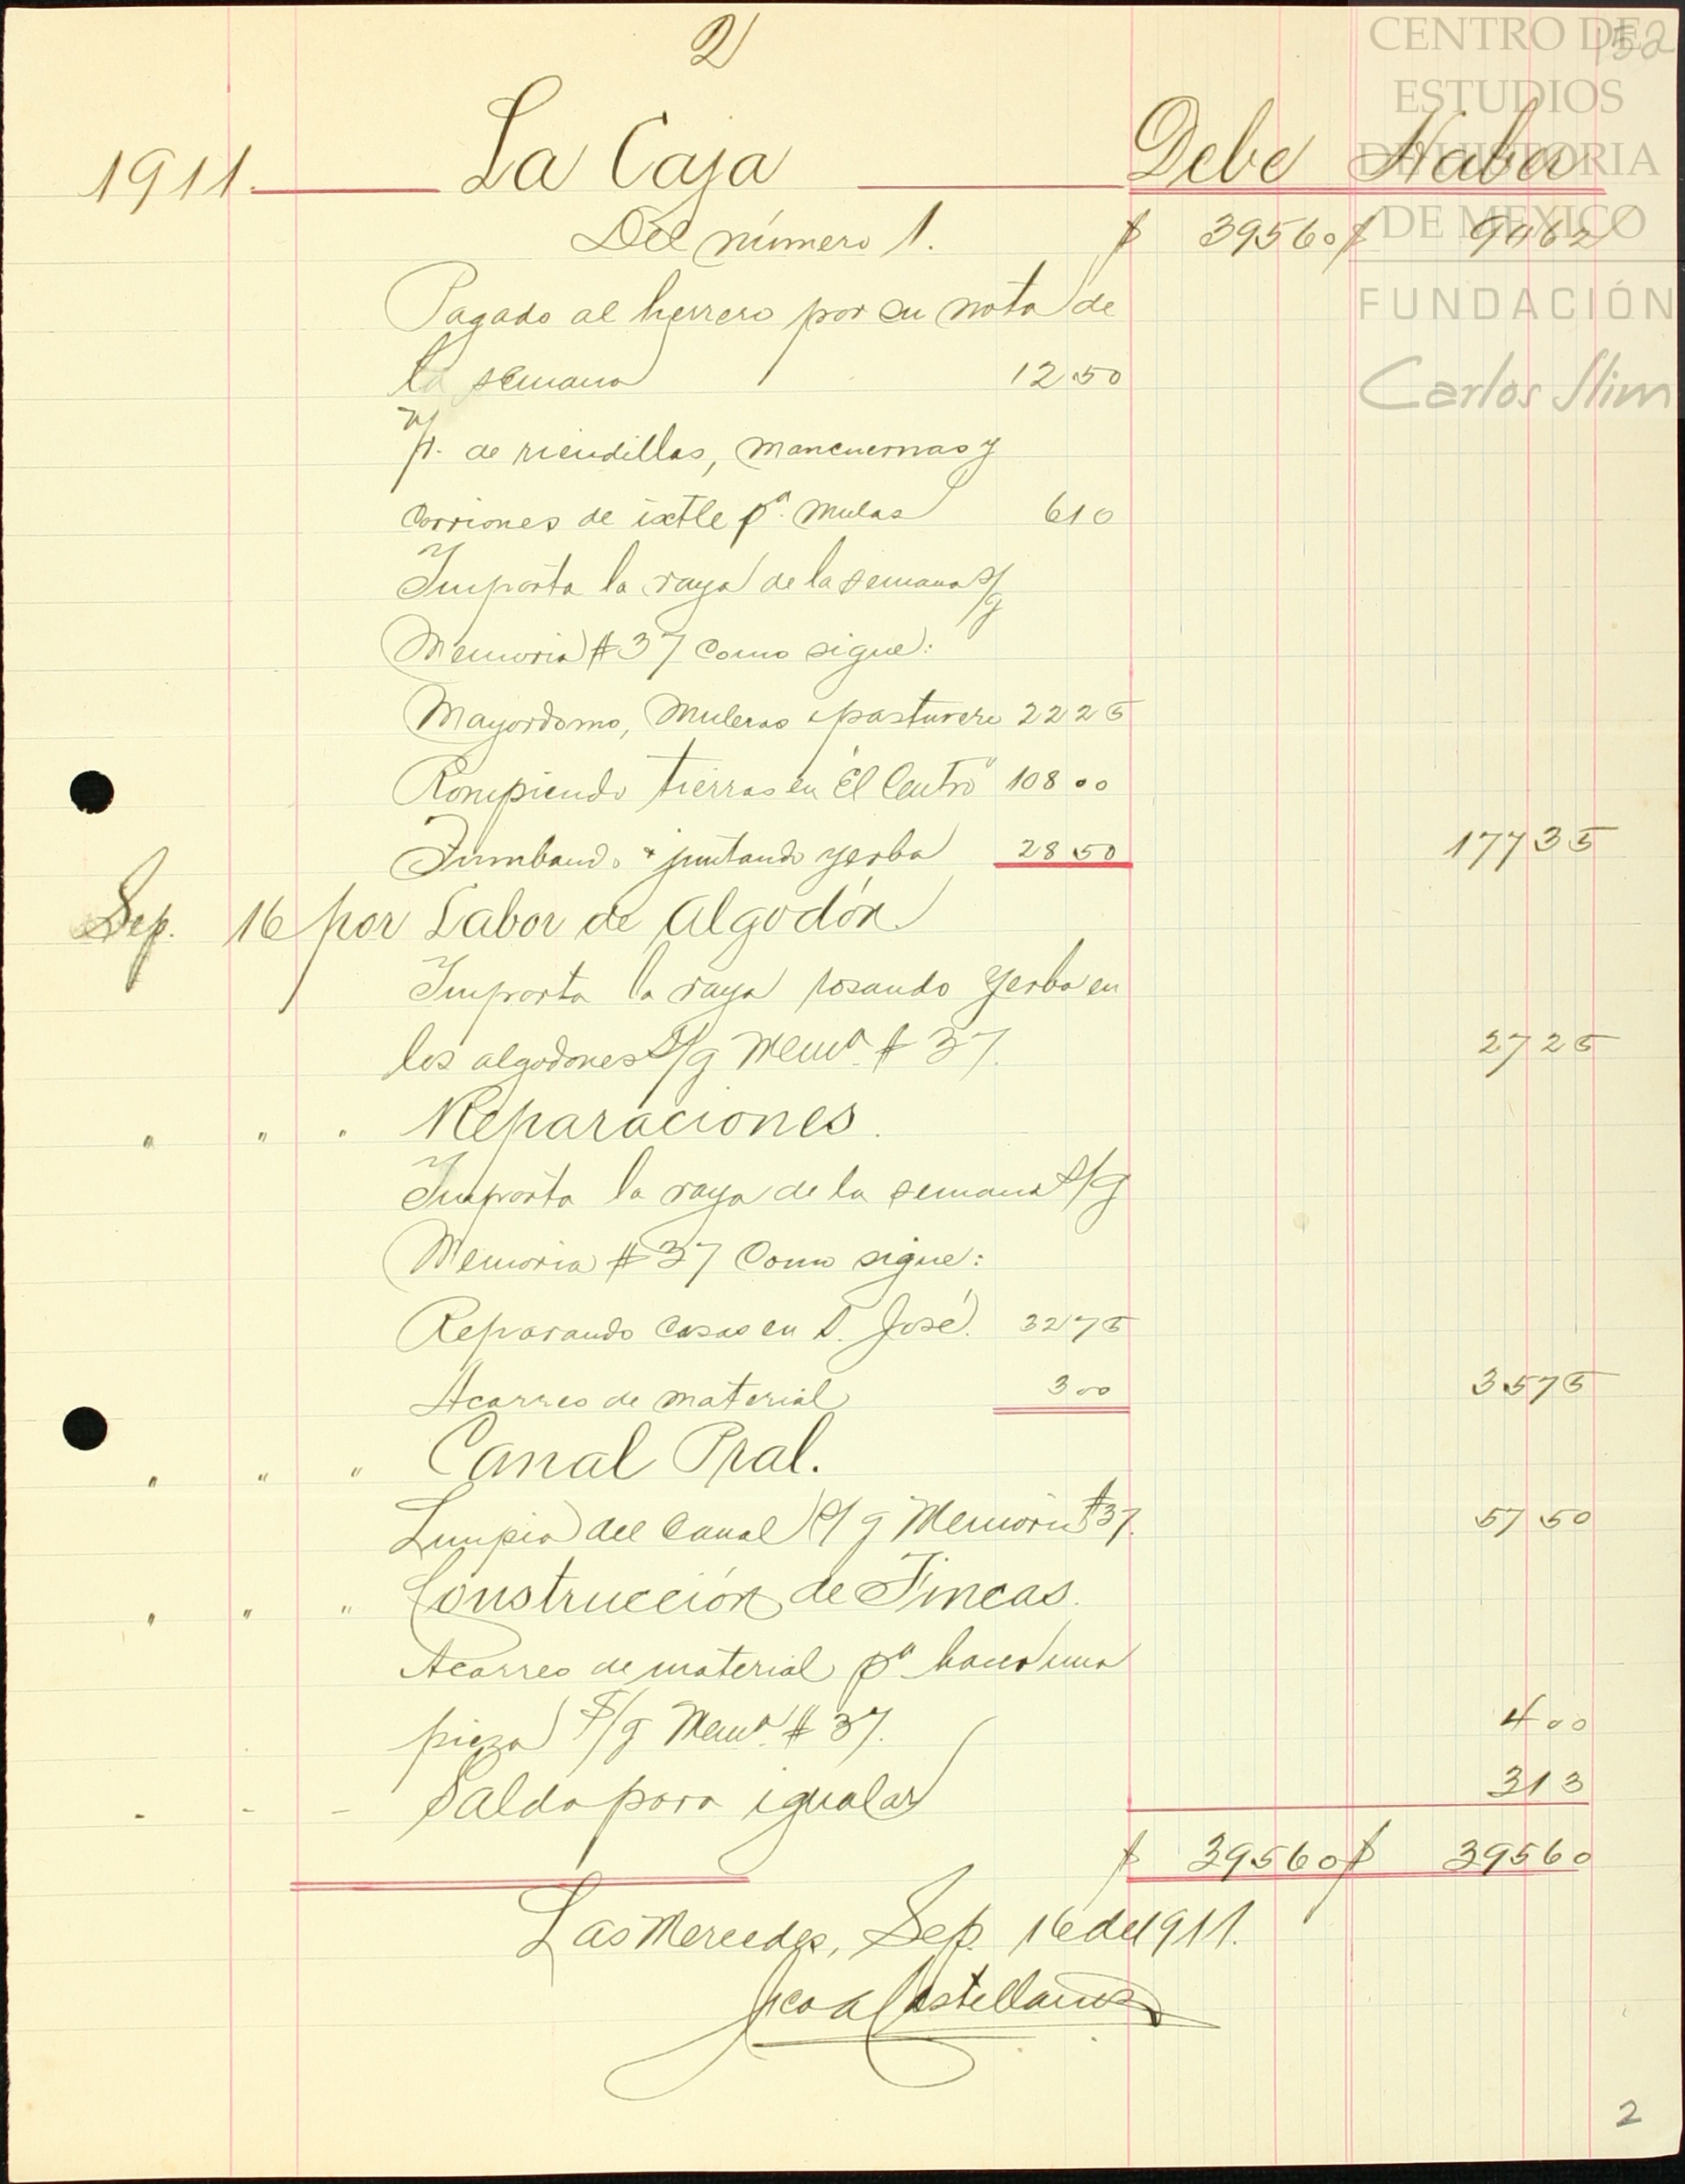 2
152
CENTRO DE
ESTUDIOS
DE HISTORIA
DE MEXICO
FUNDACIÓN
Carlos Slim
1911. La Caja Debe Haber
Del número 1. $ 395 60 $ 90 62
Pagado al herrero por su nota de
la semana 12 50
de riendillas, mancuernas y
Corriones de ixtle pª. mulas 6 10
Importa la raya de la semana s/g
Memoria #37 como sigue:
Mayordomo, Muleros y pasturero 22 25
Rompiendo tierras en "El Centro" 108 00
Tumbando y juntando yerba 28 50 177 35
Sep. 16 por Labor de Algodón
Importa la raya rosando yerba en
los algodones s/g Memª. #37. 27 25
" " " Reparaciones.
Importa la raya de la semana s/g
Memoria #37 Como sigue:
Reparando casas en S. José. 32 75
Acarreo de material 3 00 35 75
" " " Canal Pral.
Limpia del Canal s/g Memoria #37. 57 50
" " " Construcción de Fincas.
Acarreo de material pª hacer una
pieza s/g Memª. #37. 4 00
- - - Saldo para igualar 3 13
$ 395 60 $ 395 60
Las Mercedes, Sep. 16 de 1911.
Fco A Castellanos
2